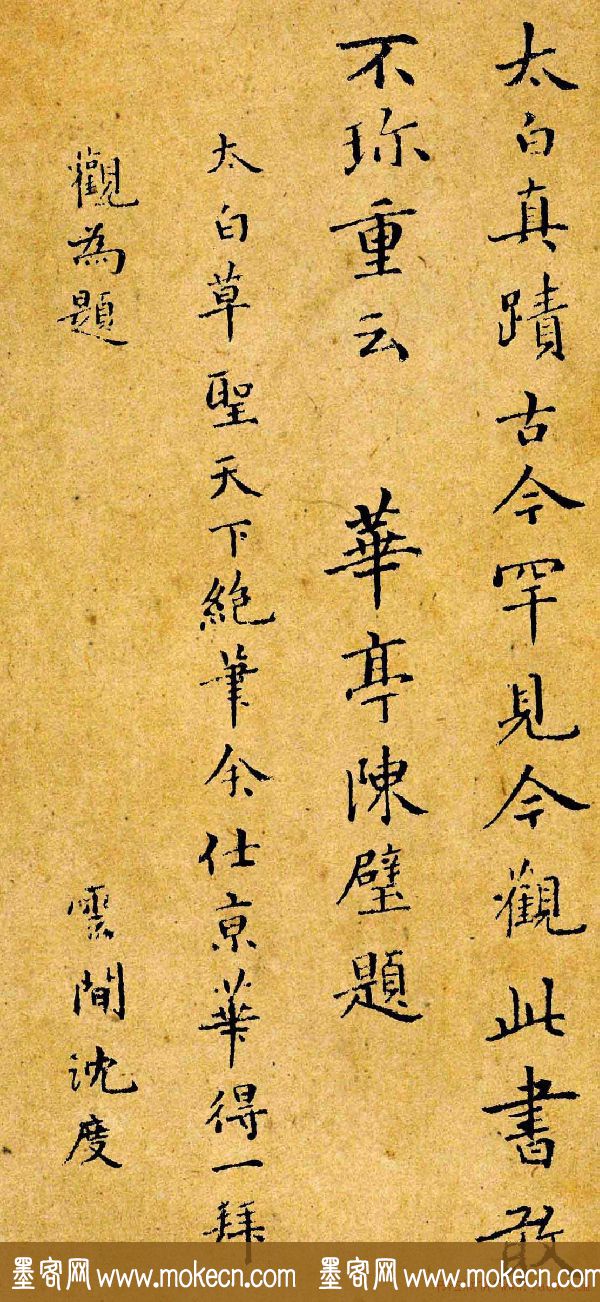 太白真蹟古今罕見今觀此書敢
不珎重云 華亭陳璧題
太白草聖天下絕筆余仕京華得一拜
觀為題 雲間沈度
墨客网 www.mokecn.com 墨客网 www.mokecn.com